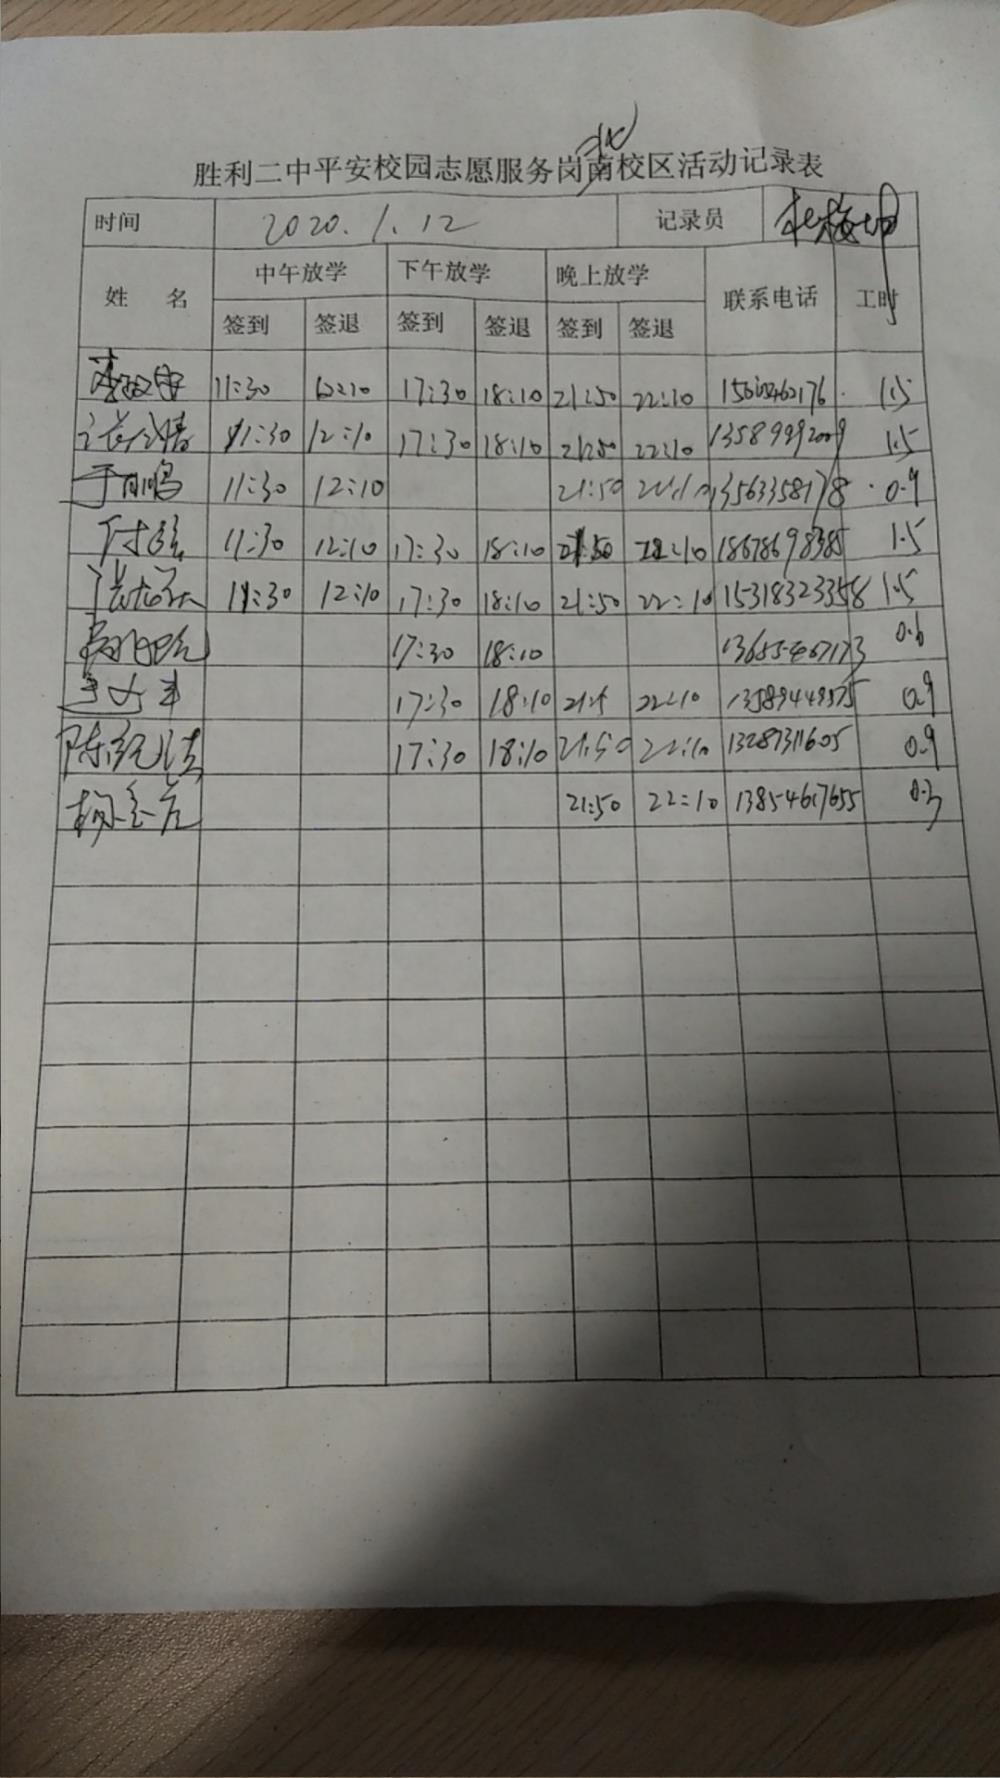 北
胜利二中平安校园志愿服务岗南校区活动记录表
时间 2020.1.12 记录员
姓 名 中午放学 下午放学 晚上放学 联系电话 工时
签到 签退 签到 签退 签到 签退
11:30 12:10 17:30 18:10 21:50 22:10 1.5
11:30 12:10 17:30 18:10 21:50 22:10 13589992009 1.5
11:30 12:10 21:50 22:10 13563358178 0.9
11:30 12:10 17:30 18:10 21:50 22:10 18678698385 1.5
11:30 12:10 17:30 18:10 21:50 22:10 15318323358 1.5
17:30 18:10 0.6
17:30 18:10 22:10 13589449375 0.9
17:30 18:10 21:50 22:10 13287311605 0.9
21:50 22:10 13854617655 0.3